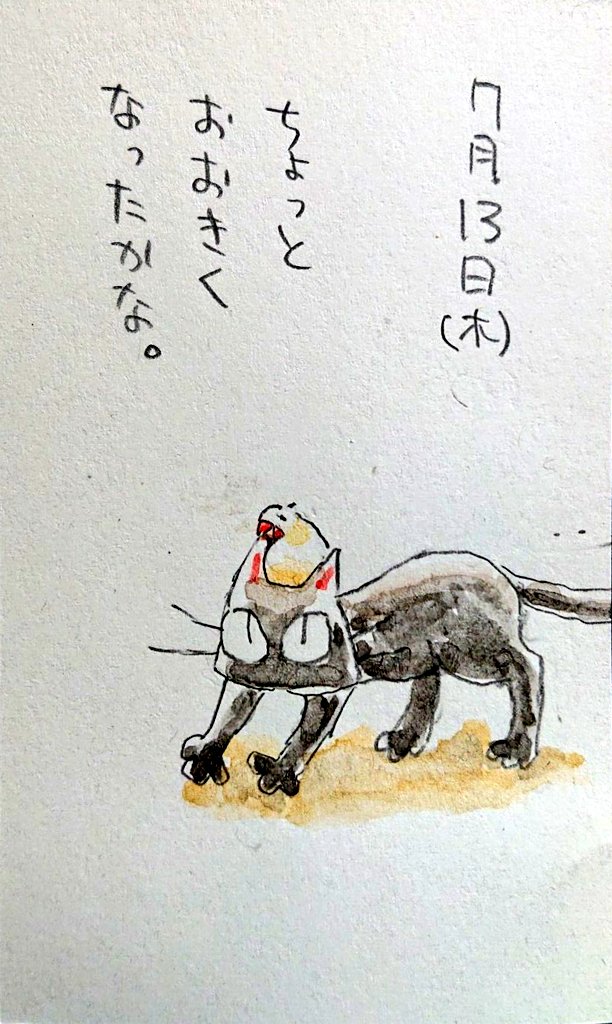 7月13日(木)
ちょっと
おおきく
なったかな。